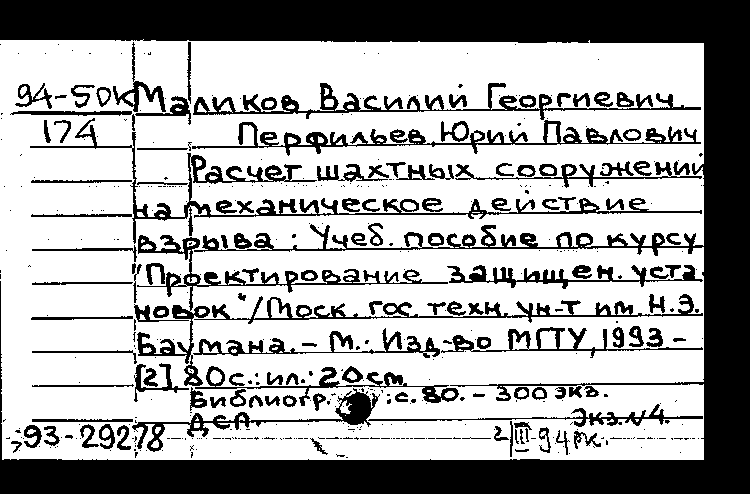 94-5DK Маликов, Василий Георгиевич.
174 Перфильев, Юрий Павлович
Расчет шахтных сооружений
на механическое действие
взрыва : Учеб. пособие по курсу
"Проектирование защищен. уста-
новок"/Моск. гос. техн. ун-т им. Н.Э.
Баумана. – М.: Изд-во МГТУ, 1993 –
[2], 80 с.: ил.; 20 см.
Библиогр.: с. 80. – 300 экз.
ДСП. Экз. №4.
93-29278 2 III 94